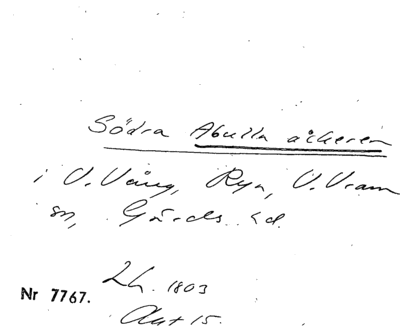 Södra Abulla åkeren
i V. Vång, Ryn, V. Vram
sn, Gärds hd.
Lh. 1803
Nr 7767.
Akt 15.